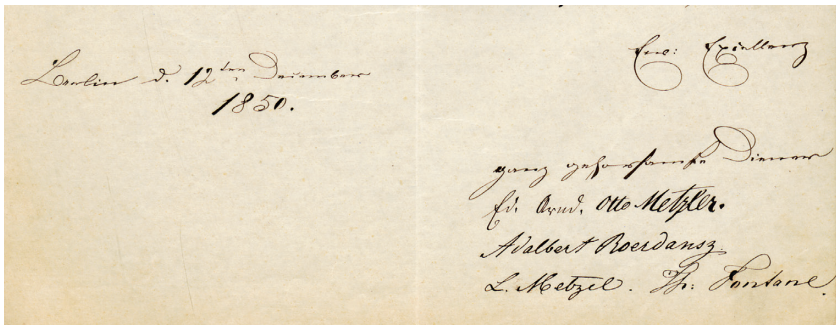 Berlin d. 12ten Dezember
1850.
Ew: Exzellenz
ganz gehorsamste Diener
Ed. Arnd. Otto Metzler.
Adalbert Roerdansz.
L. Metzel. Th: Fontane.